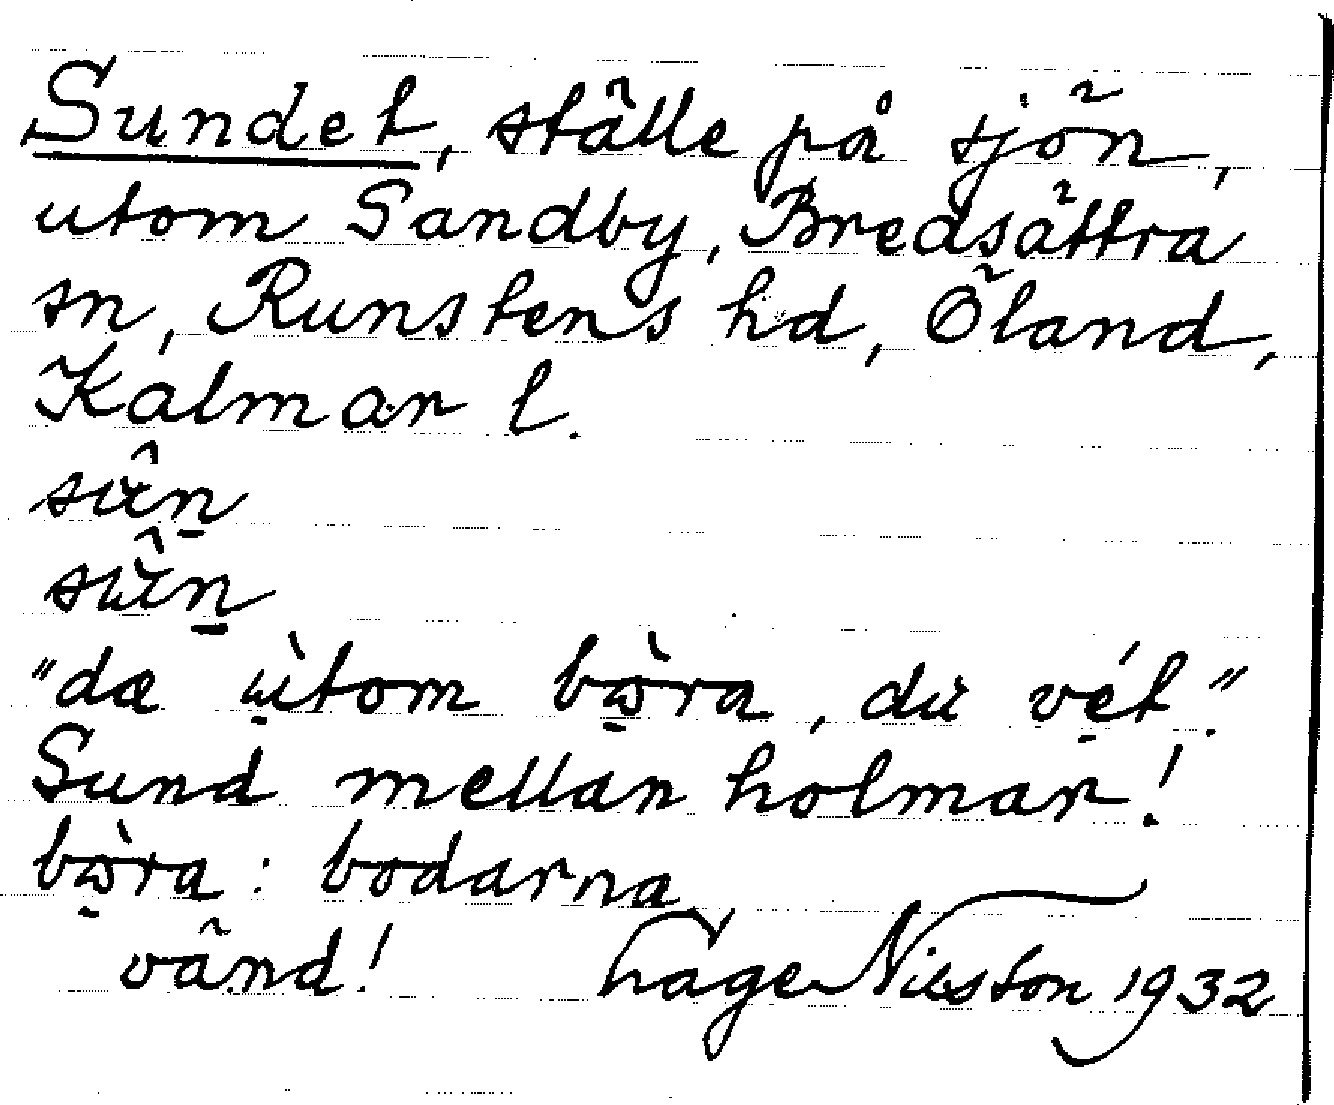 Sundet, ställe på sjön,
utom Sandby, Bredsättra
sn, Runstens hd, Öland,
Kalmar l.
"dæ ùtom bòra, du vét".
Sund mellan holmar!
bòra: bodarna
vänd! Hage Nilsson 1932